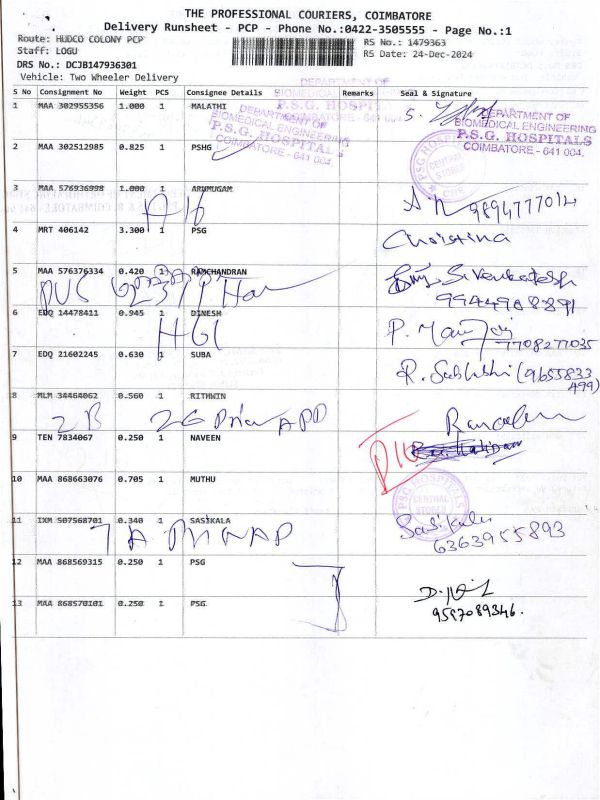 THE PROFESSIONAL COURIERS, COIMBATORE
Delivery Runsheet - PCP - Phone No.:0422-3505555 - Page No.:1
Route: HUDCO COLONY PCP
RS No.: 1479363
Staff: LOGU
RS Date: 24-Dec-2024
DRS No.: DCJB147936301
Vehicle: Two Wheeler Delivery
S No Consignment No Weight PCS Consignee Details Remarks Seal & Signature
DEPARTMENT OF
BIOMEDICAL
P.S.G. HOSPITALS
COIMBATORE - 641 004
1 MAA 302955356 1.000 1 MALATHI
DEPARTMENT OF
BIOMEDICAL ENGINEERING
P.S.G. HOSPITALS
COIMBATORE - 641 004.
DEPARTMENT OF
BIOMEDICAL ENGINEERING
P.S.G. HOSPITALS
COIMBATORE - 641 004.
2 MAA 302512985 0.825 1 PSHG
PSG HOSPITALS
CENTRAL
STORES
3 MAA 576936998 1.000 1 ARUMUGAM
A 16
9894777014
4 MRT 406142 3.300 1 PSG
Christina
5 MAA 576376334 0.420 1 RAMCHANDRAN
Sivenkatesh
9944908891
6 EDQ 14478411 0.945 1 DINESH
7708277035
7 EDQ 21602245 0.630 1 SUBA
(9655833
499)
8 MLM 34464062 0.560 1 RITHWIN
2B
9 TEN 7834067 0.250 1 NAVEEN
10 MAA 868663076 0.705 1 MUTHU
PSG HOSPITALS
CENTRAL
STORES
11 IXM 507568701 0.340 1 SASIKALA
Sasikala
6363955893
12 MAA 868569315 0.250 1 PSG
13 MAA 868570101 0.250 1 PSG
9597089346.